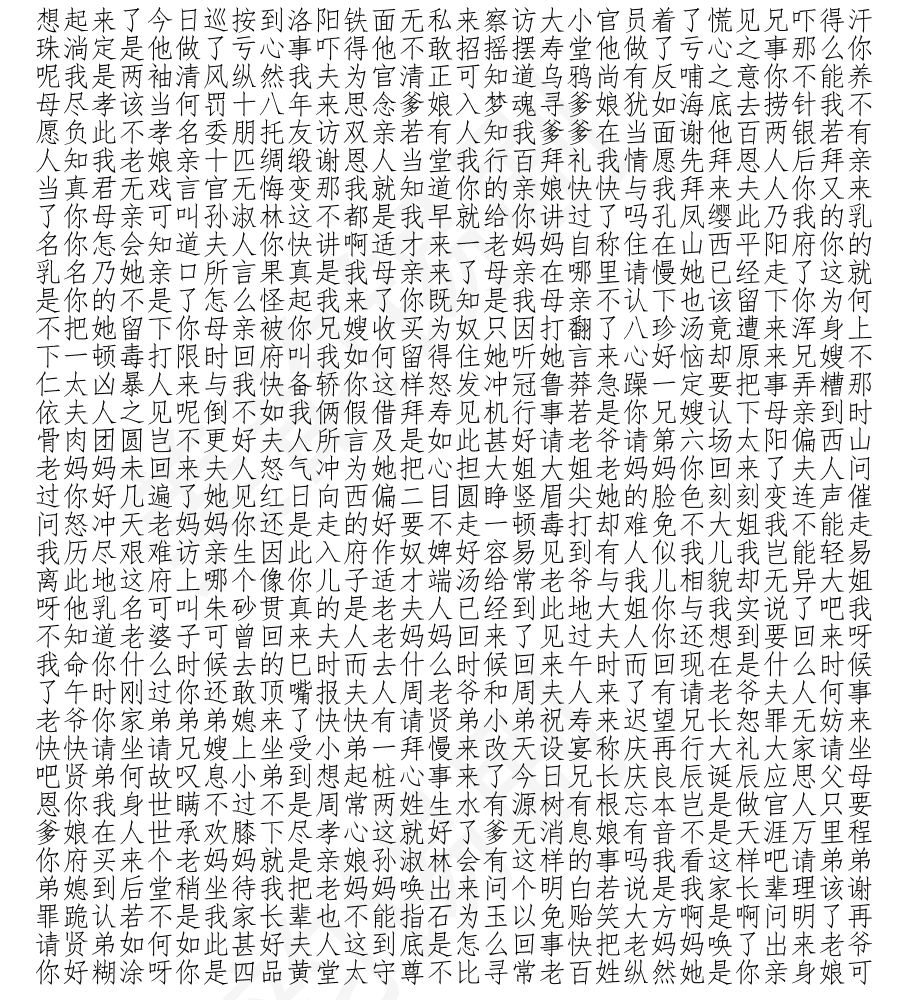 想起来了今日巡按到洛阳铁面无私来察访大小官员着了慌见兄吓得汗
珠淌定是他做了亏心事吓得他不敢招摇摆寿堂他做了亏心之事那么你
呢我是两袖清风纵然我夫为官清正可知道乌鸦尚有反哺之意你不能养
母尽孝该当何罚十八年来思念爹娘入梦魂寻爹娘犹如海底去捞针我不
愿负此不孝名委朋托友访双亲若有人知我爹爹在当面谢他百两银若有
人知我老娘亲十匹绸缎谢恩人当堂我行百拜礼我情愿先拜恩人后拜亲
当真君无戏言官无悔变那我就知道你的亲娘快快与我拜来夫人你又来
了你母亲可叫孙淑林这不都是我早就给你讲过了吗孔凤缨此乃我的乳
名你怎会知道夫人你快讲啊适才来一老妈妈自称住在山西平阳府你的
乳名乃她亲口所言果真是我母亲来了母亲在哪里请慢她已经走了这就
是你的不是了怎么怪起我来了你既知是我母亲不认下也该留下你为何
不把她留下你母亲被你兄嫂收买为奴只因打翻了八珍汤竟遭来浑身上
下一顿毒打限时回府叫我如何留得住她听她言来心好恼却原来兄嫂不
仁太凶暴人来与我快备轿你这样怒发冲冠鲁莽急躁一定要把事弄糟那
依夫人之见呢倒不如我俩假借拜寿见机行事若是你兄嫂认下母亲到时
骨肉团圆岂不更好夫人所言及是如此甚好请老爷请第六场太阳偏西山
老妈妈未回来夫人怒气冲为她把心担大姐大姐老妈妈你回来了夫人问
过你好几遍了她见红日向西偏二目圆睁竖眉尖她的脸色刻刻变连声催
问怒冲天老妈妈你还是走的好要不走一顿毒打却难免不大姐我不能走
我历尽艰难访亲生因此入府作奴婢好容易见到有人似我儿我岂能轻易
离此地这府上哪个像你儿子适才端汤给常老爷与我儿相貌却无异大姐
呀他乳名可叫朱砂贯真的是老夫人已经到此地大姐你与我实说了吧我
不知道老婆子可曾回来夫人老妈妈回来了见过夫人你还想到要回来呀
我命你什么时候去的巳时而去什么时候回来午时而回现在是什么时候
了午时刚过你还敢顶嘴报夫人周老爷和周夫人来了有请老爷夫人何事
老爷你家弟弟弟媳来了快快有请贤弟小弟祝寿来迟望兄长恕罪无妨来
快快请坐请兄嫂上坐受小弟一拜慢来改天设宴称庆再行大礼大家请坐
吧贤弟何故叹息小弟到想起桩心事来了今日兄长庆良辰诞辰应思父母
恩你我身世瞒不过不是周常两姓生水有源树有根忘本岂是做官人只要
爹娘在人世承欢膝下尽孝心这就好了爹无消息娘有音不是天涯万里程
你府买来个老妈妈就是亲娘孙淑林会有这样的事吗我看这样吧请弟弟
弟媳到后堂稍坐待我把老妈妈唤出来问个明白若说是我家长辈理该谢
罪跪认若不是我家长辈也不能指石为玉以免贻笑大方啊是啊问明了再
请贤弟如何如此甚好夫人这到底是怎么回事快把老妈妈唤了出来老爷
你好糊涂呀你是四品黄堂太守尊不比寻常老百姓纵然她是你亲身娘可